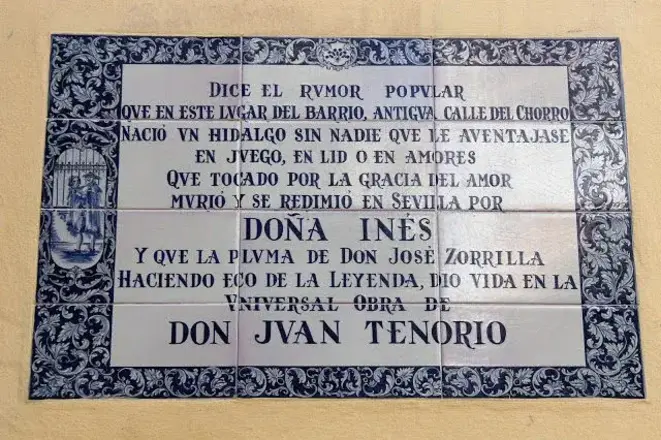 DICE EL RVMOR POPVLAR
QVE EN ESTE LVGAR DEL BARRIO, ANTIGVA CALLE DEL CHORRO
NACIÓ VN HIDALGO SIN NADIE QVE LE AVENTAJASE
EN JVEGO, EN LID O EN AMORES
QVE TOCADO POR LA GRACIA DEL AMOR
MVRIÓ Y SE REDIMIÓ EN SEVILLA POR
DOÑA INÉS
Y QVE LA PLVMA DE DON JOSÉ ZORRILLA
HACIENDO ECO DE LA LEYENDA, DIO VIDA EN LA
VNIVERSAL OBRA DE
DON JVAN TENORIO